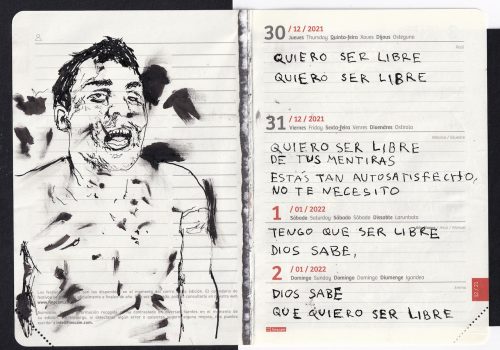 30 / 12 / 2021
Jueves Thursday Quinta-feira Xoves Dijous Osteguna
QUIERO SER LIBRE
QUIERO SER LIBRE
31 / 12 / 2021
Viernes Friday Sexta-feira Venres Divendres Ostirala
QUIERO SER LIBRE
DE TUS MENTIRAS
ESTÁS TAN AUTOSATISFECHO,
NO TE NECESITO
1 / 01 / 2022
Sábado Saturday Sábado Sábado Dissabte Larunbata
TENGO QUE SER LIBRE
DIOS SABE,
2 / 01 / 2022
Domingo Sunday Domingo Domingo Diumenge Igandea
DIOS SABE
QUE QUIERO SER LIBRE
finocam